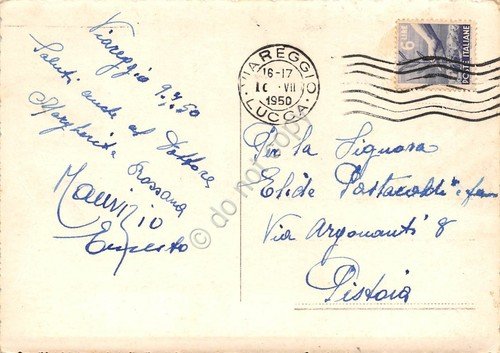 Viareggio 9.7.50
Saluti anche al Dottore
Margherita Rossana
Maurizio
Ernesto
VIAREGGIO
16-17
VII
1950
LUCCA
6 LIRE
POSTE ITALIANE
Per la Signora
Elide
Via Argonauti 8
Pistoia
do not copy